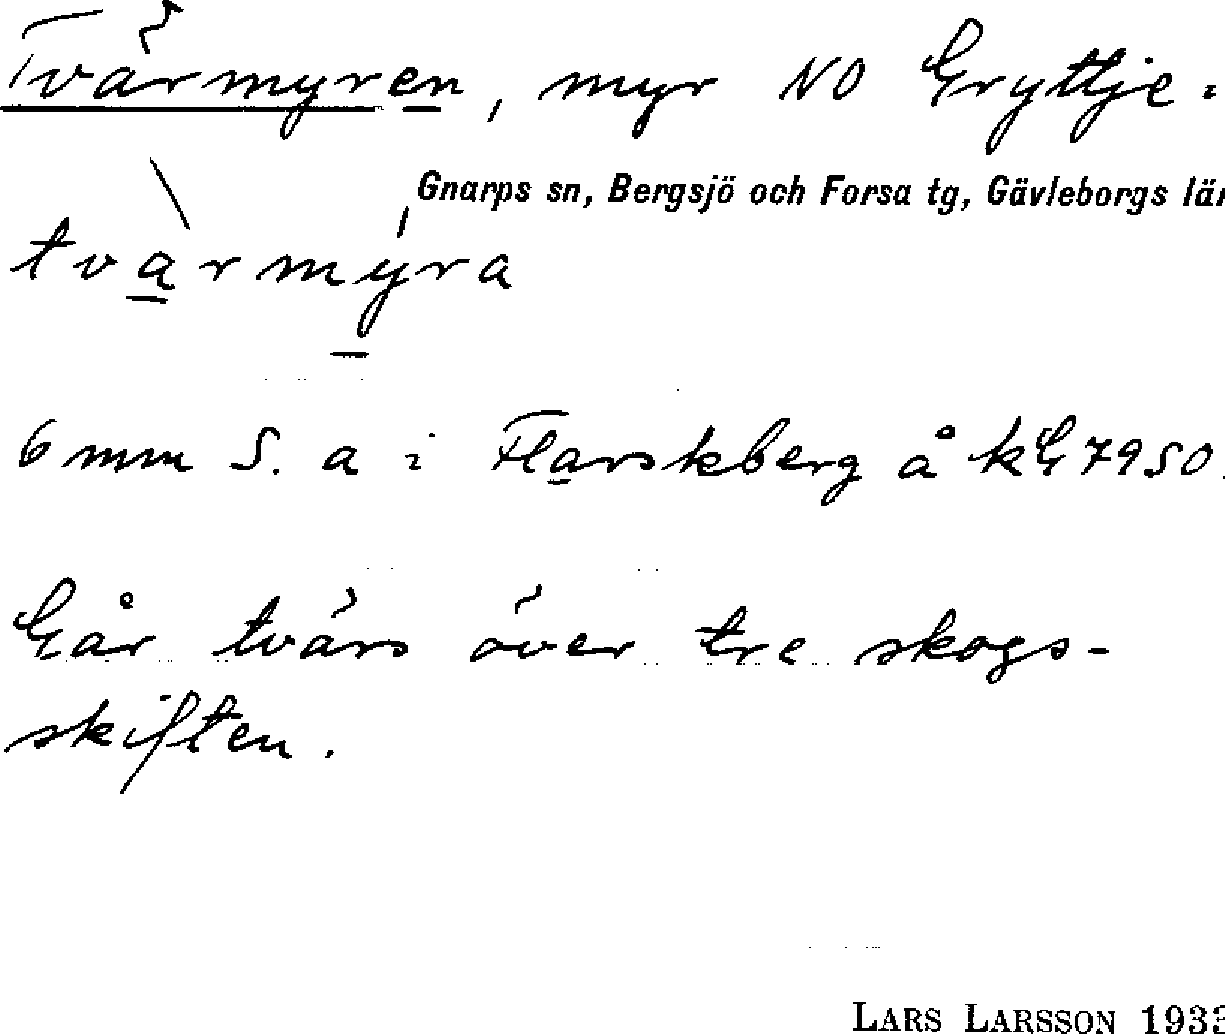 Tvärmyren, myr NO Gryttje=
Gnarps sn, Bergsjö och Forsa tg, Gävleborgs län
tvàrmýra
6 mm S. a i Flarskberg å kG 7950.
Går tvärs över tre skogs-
skiften.
LARS LARSSON 1933